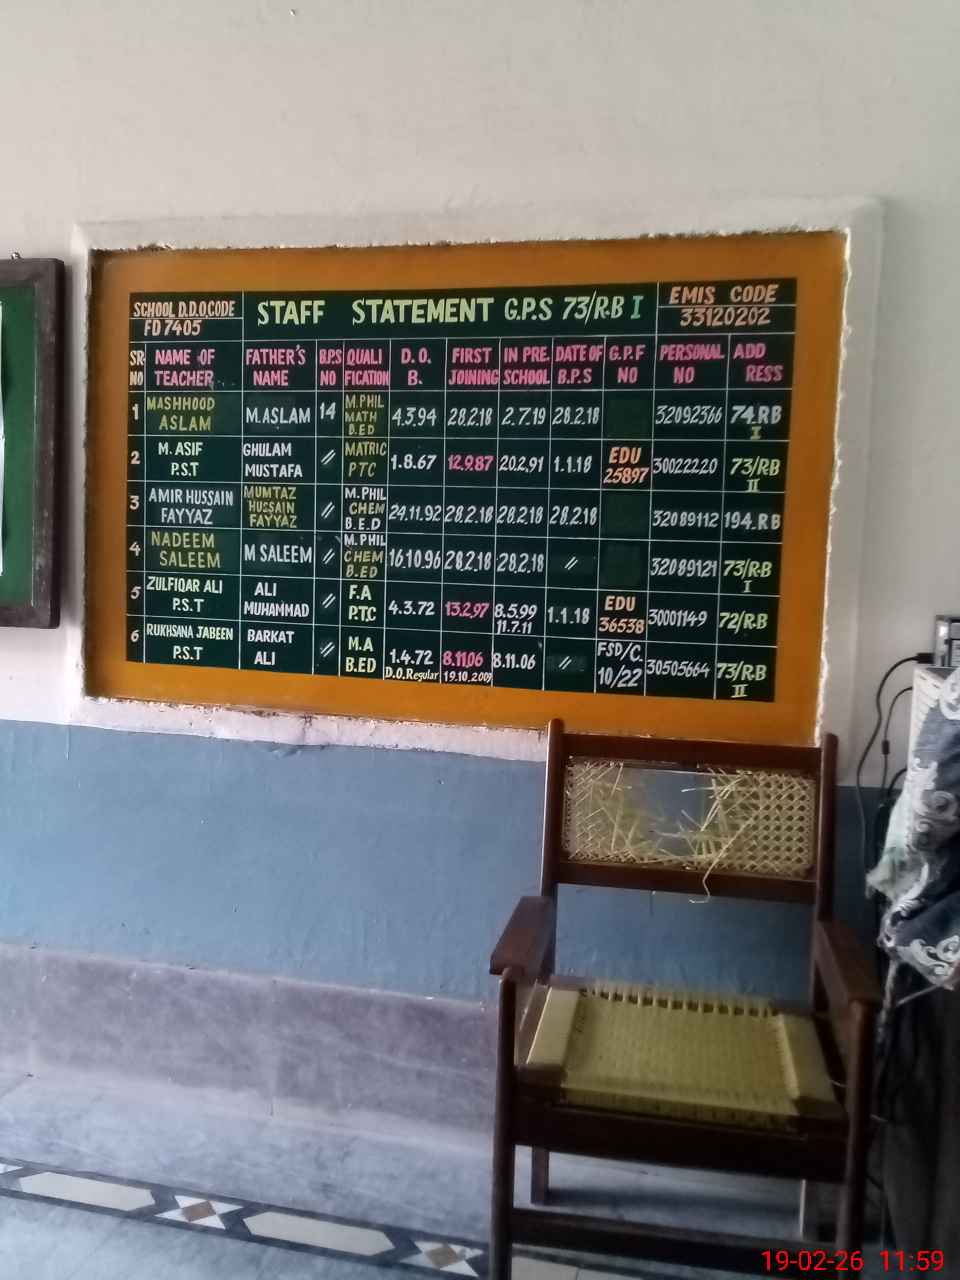 SCHOOL D.D.O.CODE
FD 7405
STAFF STATEMENT G.P.S 73/R.B I
EMIS CODE
33120202
SR NO NAME OF TEACHER FATHER'S NAME B.P.S NO QUALI FICATION D.O. B. FIRST JOINING IN PRE. SCHOOL DATE OF B.P.S G.P.F NO PERSONAL NO ADD RESS
1 MASHHOOD ASLAM M.ASLAM 14 M.PHIL MATH B.ED 4.3.94 28.2.18 2.7.19 28.2.18 32092366 74.RB I
2 M. ASIF P.S.T GHULAM MUSTAFA // MATRIC PTC 1.8.67 12.9.87 20.2.91 1.1.18 EDU 25897 30022220 73/RB II
3 AMIR HUSSAIN FAYYAZ MUMTAZ HUSSAIN FAYYAZ // M.PHIL CHEM B.E.D 24.11.92 28.2.18 28.2.18 28.2.18 32089112 194.RB
4 NADEEM SALEEM M SALEEM // M.PHIL CHEM B.ED 16.10.96 28.2.18 28.2.18 // 32089121 73/R.B I
5 ZULFIQAR ALI P.S.T ALI MUHAMMAD // F.A P.T.C 4.3.72 13.2.97 8.5.99 11.7.11 1.1.18 EDU 36538 30001149 72/R.B
6 RUKHSANA JABEEN P.S.T BARKAT ALI // M.A B.ED 1.4.72 D.O.Regular 8.11.06 19.10.2009 8.11.06 // FSD/C. 10/22 30505664 73/R.B II
19-02-26 11:59